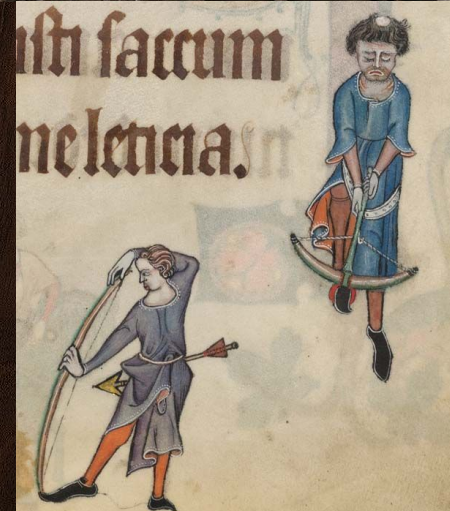 isti saccum
me leticia.